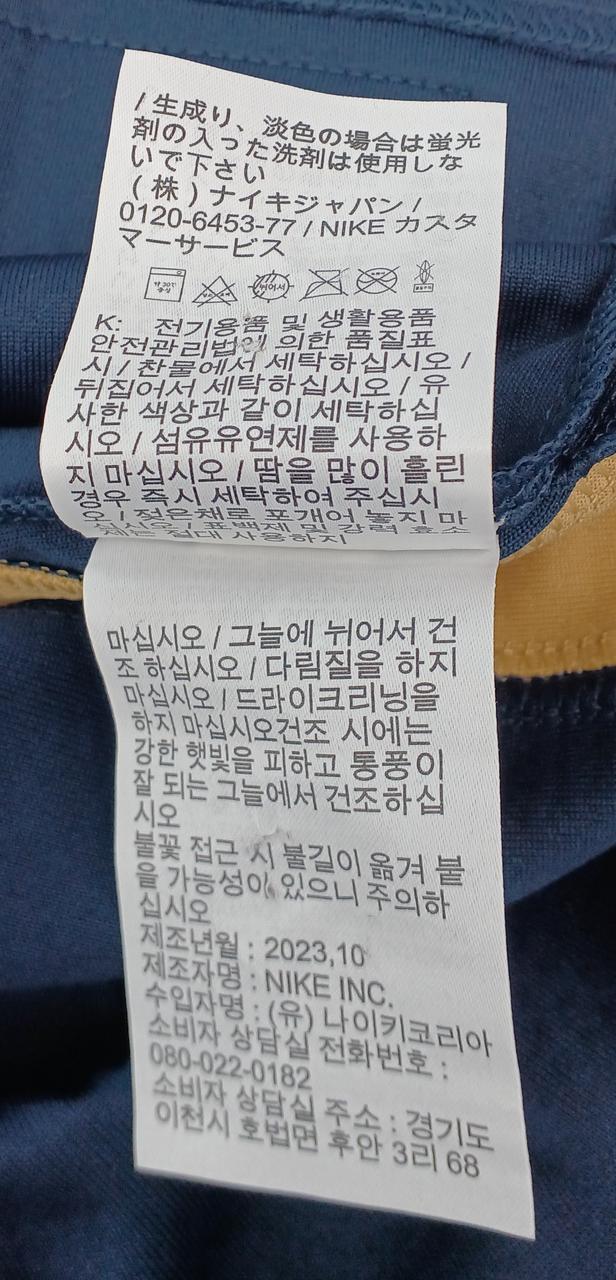 / 生成り、淡色の場合は蛍光
剤の入った洗剤は使用しな
いで下さい
(株) ナイキジャパン /
0120-6453-77 / NIKE カスタ
マーサービス
약 30℃
중성
뉘어서
K: 전기용품 및 생활용품
안전관리법에 의한 품질표
시 / 찬물에서 세탁하십시오 /
뒤집어서 세탁하십시오 / 유
사한 색상과 같이 세탁하십
시오 / 섬유유연제를 사용하
지 마십시오 / 땀을 많이 흘린
경우 즉시 세탁하여 주십시
오 / 젖은채로 포개어 놓지 마
십시오 / 표백제 및 강력 효소
세는 절대 사용하지
마십시오 / 그늘에 뉘어서 건
조 하십시오 / 다림질을 하지
마십시오 / 드라이크리닝을
하지 마십시오건조 시에는
강한 햇빛을 피하고 통풍이
잘 되는 그늘에서 건조하십
시오
불꽃 접근 시 불길이 옮겨 붙
을 가능성이 있으니 주의하
십시오
제조년월 : 2023,10
제조자명 : NIKE INC.
수입자명 : (유) 나이키코리아
소비자 상담실 전화번호 :
080-022-0182
소비자 상담실 주소 : 경기도
이천시 호법면 후안 3리 68